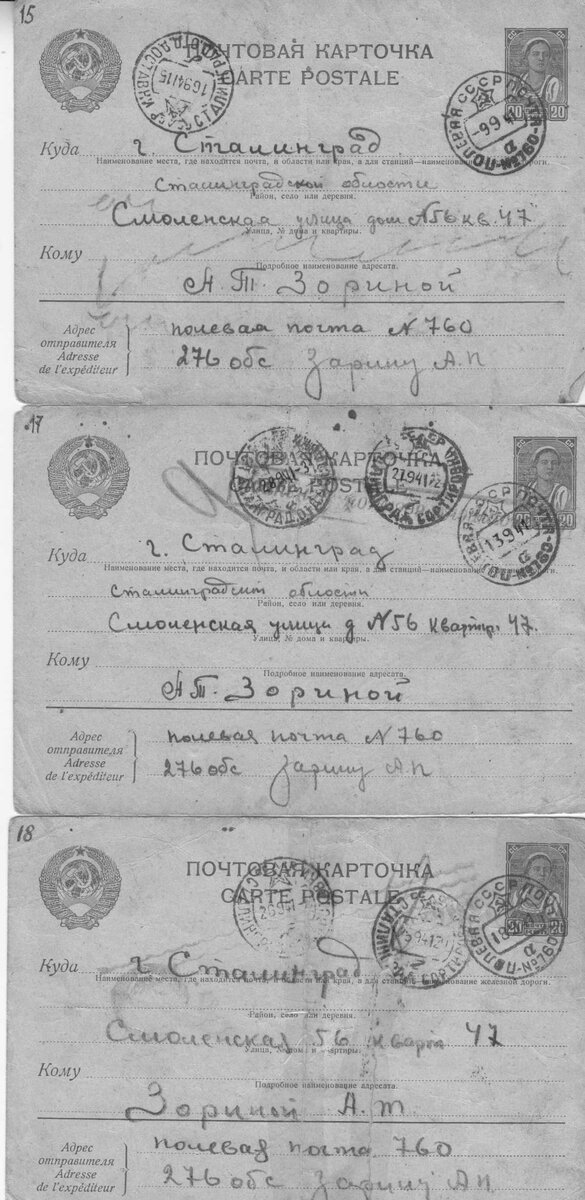 15
ПОЧТОВАЯ КАРТОЧКА
CARTE POSTALE
20 20
ПОЛЕВАЯ ПОЧТА СССР
-9.9.41
а
№760
Куда г. Сталинград
Наименование места, где находится почта, и области или края, а для станций—наименование железной дороги.
Сталинградской области
Район, село или деревня.
Смоленская улица дом №56 кв. 47
Улица, № дома и квартиры.
Кому
Подробное наименование адресата.
А.Т. Зориной
Адрес отправителя
Adresse de l'expéditeur
полевая почта №760
276 обс Зарину А.П
17
ПОЧТОВАЯ КАРТОЧКА
CARTE POSTALE
13.9.41
а
№760
Куда г. Сталинград
Наименование места, где находится почта, и области или края, а для станций—наименование железной дороги.
Сталинградской области
Район, село или деревня.
Смоленская улица д №56 квартир. 47.
Улица, № дома и квартиры.
Кому
Подробное наименование адресата.
А.Т. Зориной
Адрес отправителя
Adresse de l'expéditeur
полевая почта №760
276 обс Зарину А П
18
ПОЧТОВАЯ КАРТОЧКА
CARTE POSTALE
а
№760
Куда г. Сталинград
Наименование места, где находится почта, и области или края, а для станций—наименование железной дороги.
Район, село или деревня.
Смоленская 56 кварт 47
Улица, № дома и квартиры.
Кому
Подробное наименование адресата.
Зориной А.Т
Адрес отправителя
Adresse de l'expéditeur
полевая почта 760
276 обс Зарину А П